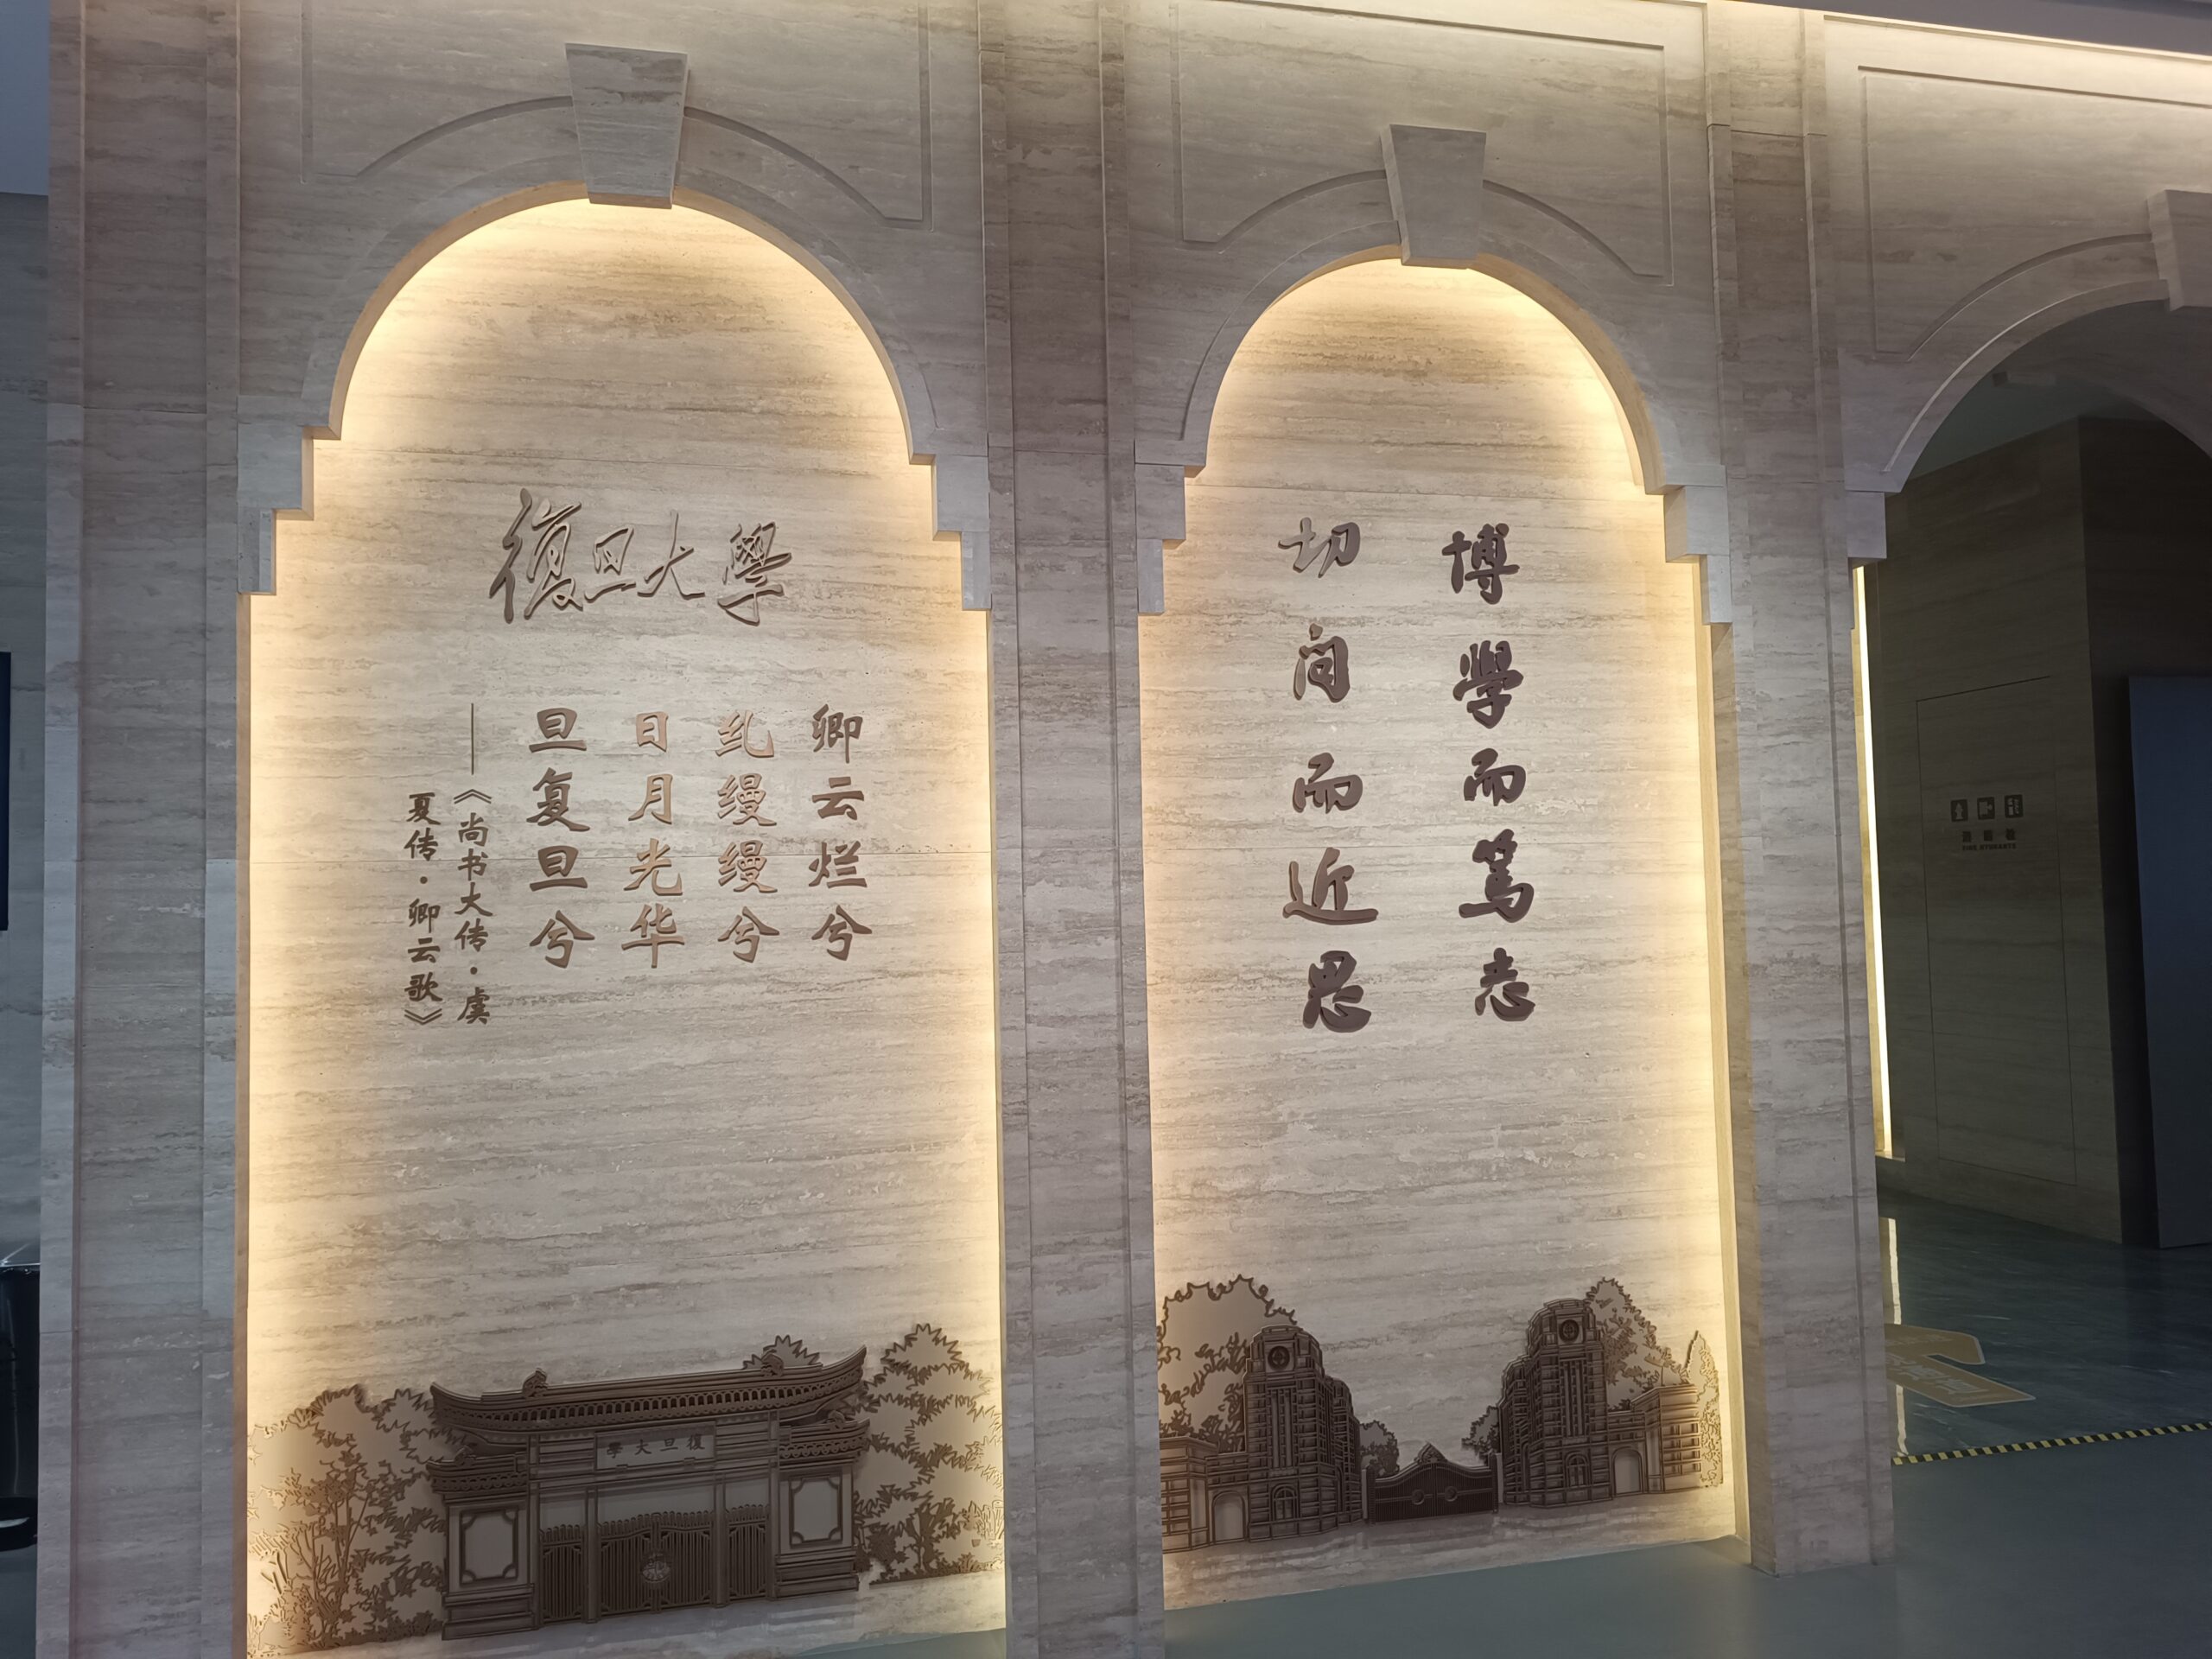 復旦大學
卿云烂兮
糺缦缦兮
日月光华
旦复旦兮
——《尚书大传·虞
夏传·卿云歌》
學大旦復
博學而篤志
切问而近思
消火栓
FIRE HYDRANTS